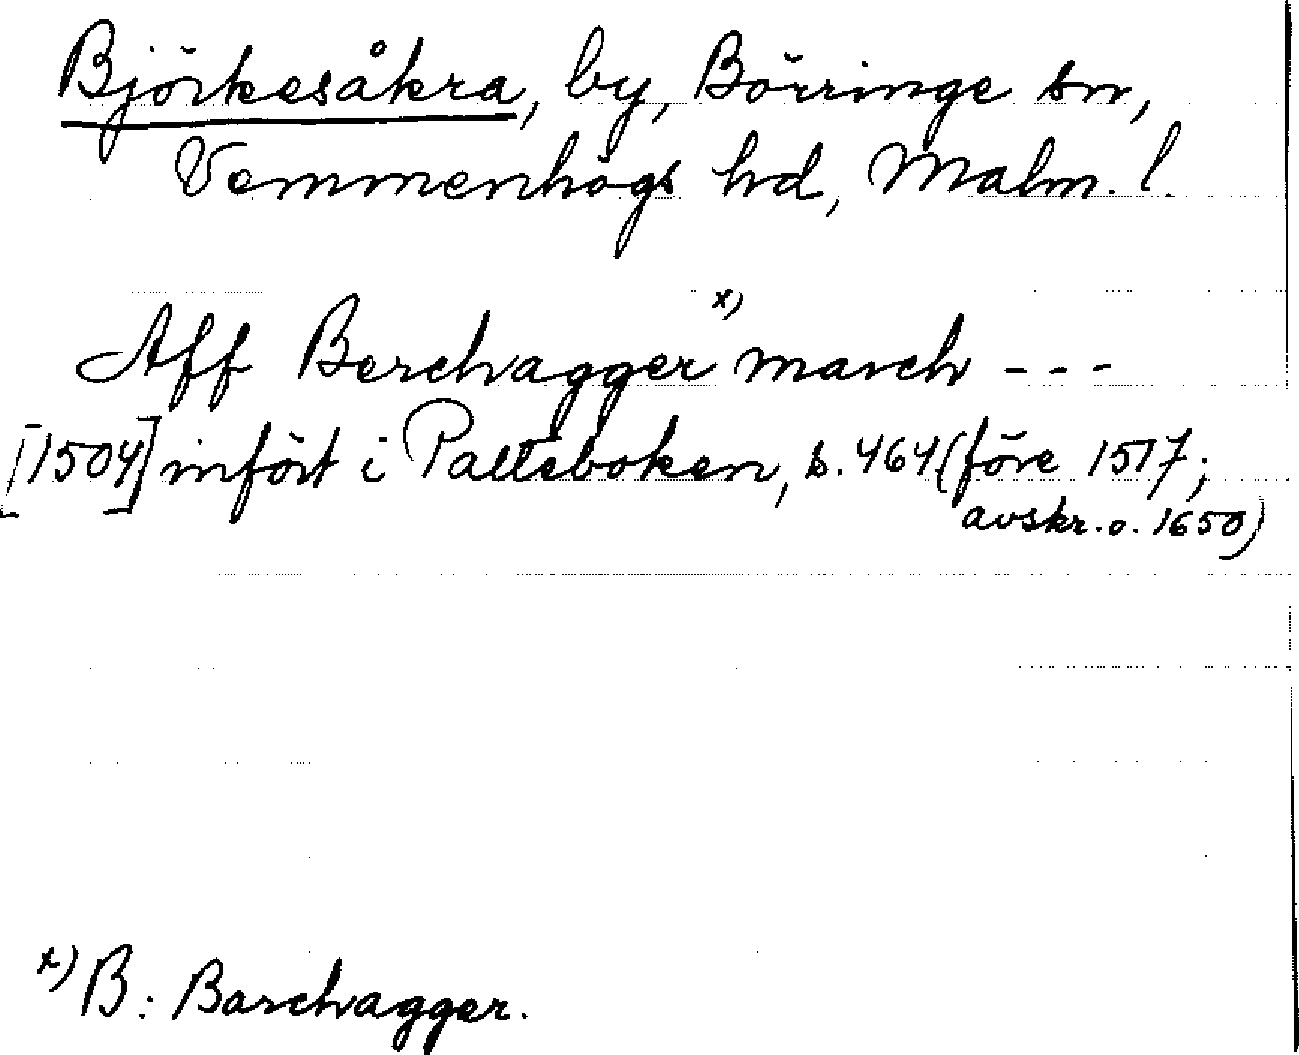 Björkesåkra, by, Börringe sn,
Vemmenhögs hd, Malm. l.
Aff Berchagger x) march - - -
[1504] infört i Palteboken, s. 464 (före 1517;
avskr. o. 1650)
x) B: Barchagger.